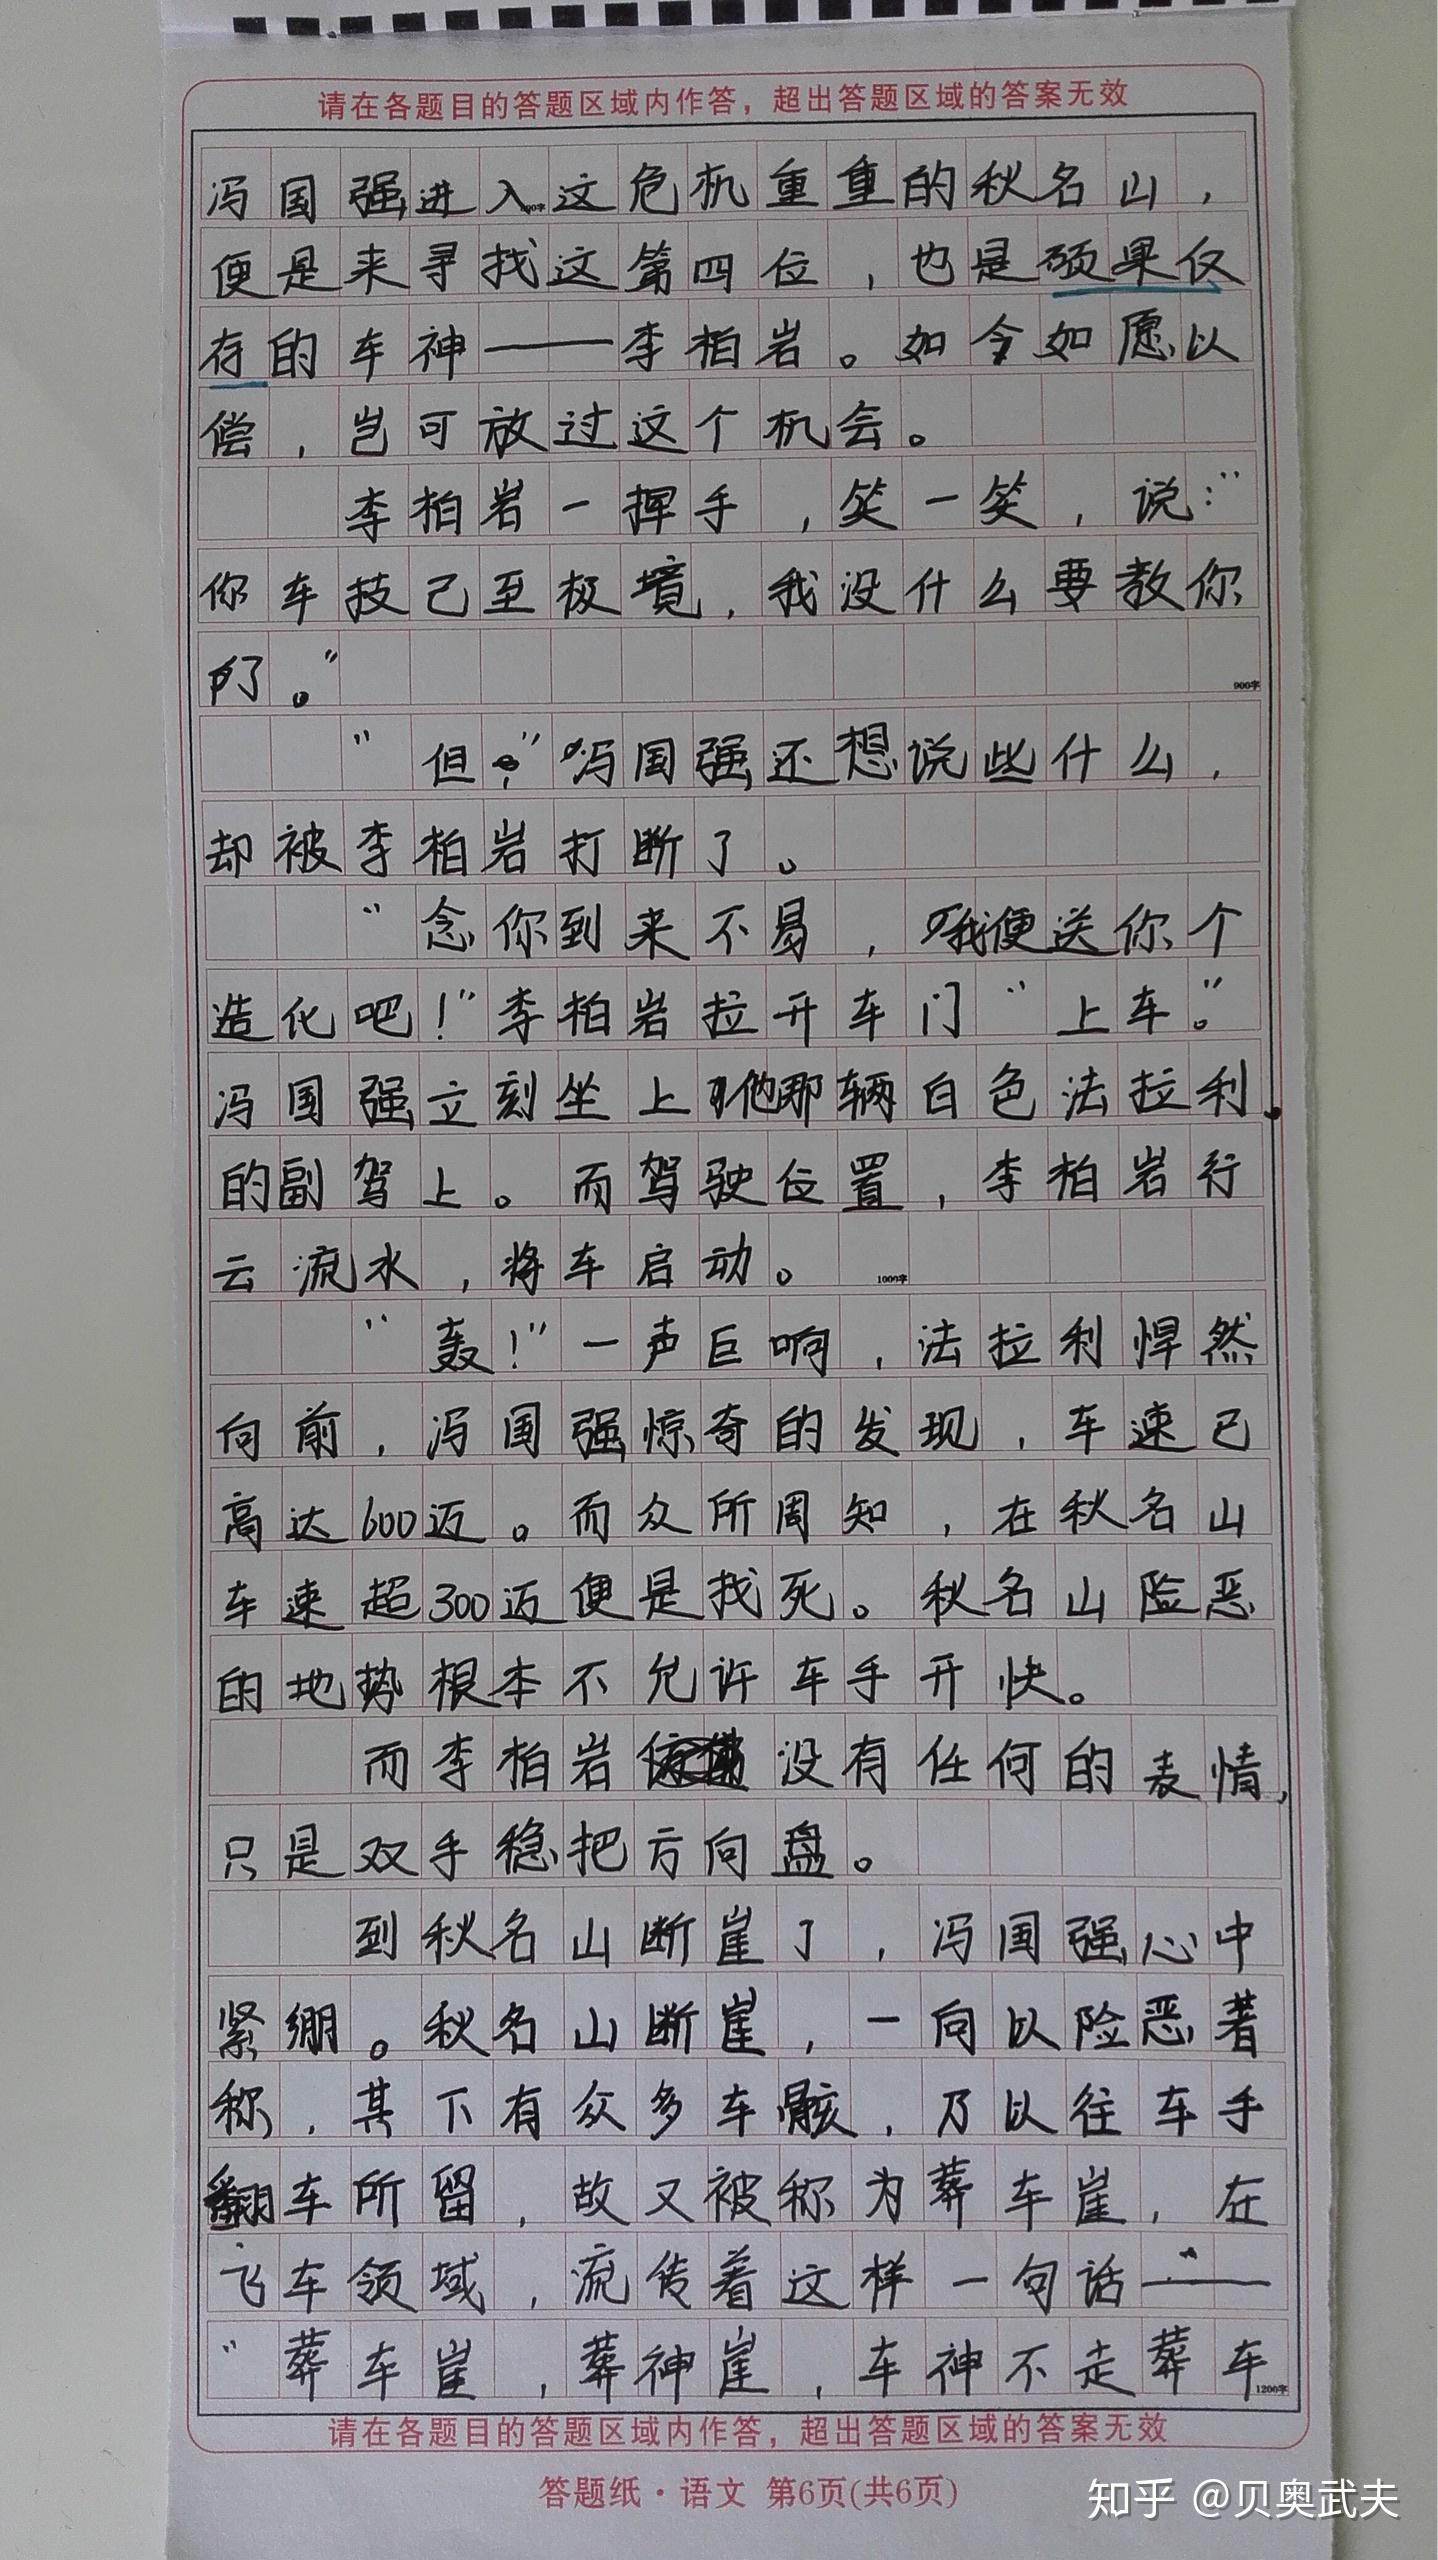 请在各题目的答题区域内作答，超出答题区域的答案无效
冯国强进入这危机重重的秋名山，
便是来寻找这第四位，也是硕果仅
存的车神——李柏岩。如今如愿以
偿，岂可放过这个机会。
李柏岩一挥手，笑一笑，说：“
你车技已至极境，我没什么要教你
的了。”
900字
“但，”冯国强还想说些什么，
却被李柏岩打断了。
“念你到来不易，我便送你个
造化吧！”李柏岩拉开车门“上车。”
冯国强立刻坐上他那辆白色法拉利
的副驾上。而驾驶位置，李柏岩行
云流水，将车启动。
1000字
“轰！”一声巨响，法拉利悍然
向前，冯国强惊奇的发现，车速已
高达600迈。而众所周知，在秋名山
车速超300迈便是找死。秋名山险恶
的地势根本不允许车手开快。
而李柏岩没有任何的表情，
只是双手稳把方向盘。
到秋名山断崖了，冯国强心中
紧绷。秋名山断崖，一向以险恶著
称，其下有众多车骸，乃以往车手
翻车所留，故又被称为葬车崖，在
飞车领域，流传着这样一句话——
“葬车崖，葬神崖，车神不走葬车
1200字
请在各题目的答题区域内作答，超出答题区域的答案无效
答题纸·语文 第6页(共6页)
知乎 @贝奥武夫